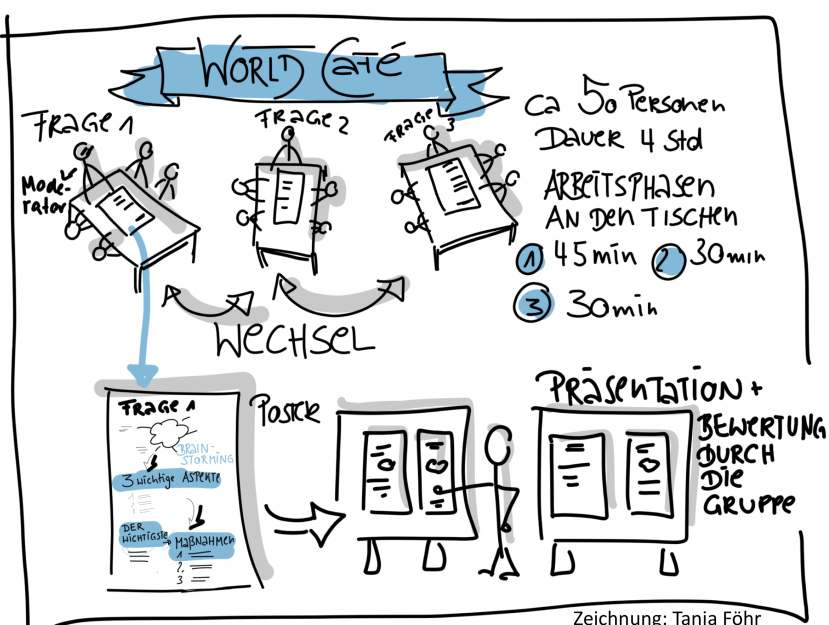 WORLD CAFÉ
FRAGE 1
FRAGE 2
FRAGE 3
Mode-
rator
ca 50 Personen
Dauer 4 Std
ARBEITSPHASEN
AN DEN TISCHEN
1 45 min 2 30 min
3 30 min
WECHSEL
FRAGE 1
BRAIN-
STORMING
3 wichtige ASPEKTE
DER
WICHTIGSTE
MAẞNAHMEN
1
2.
3
POSTER
PRÄSENTATION +
BEWERTUNG
DURCH
DIE
GRUPPE
Zeichnung: Tanja Föhr